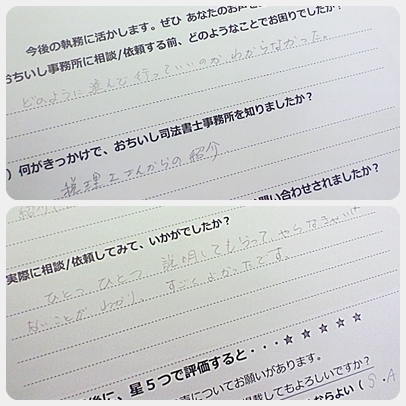 今後の執務に活かします。ぜひ あなたのお声を
おちいし事務所に相談/依頼する前、どのようなことでお困りでしたか?
どのように進んで行っていいのかわからなかった。
) 何がきっかけで、おちいし司法書士事務所を知りましたか?
税理士さんからの紹介
問い合わせされましたか?
実際に相談/依頼してみて、いかがでしたか?
ひとつひとつ、説明してもらって、やらなきゃいけ
ないことがわかり、すごくよかったです。
後に、星5つで評価すると・・・☆ ☆ ☆ ☆ ☆
についてお願いがあります。
掲載してもよろしいですか?
ならよい ( S・A